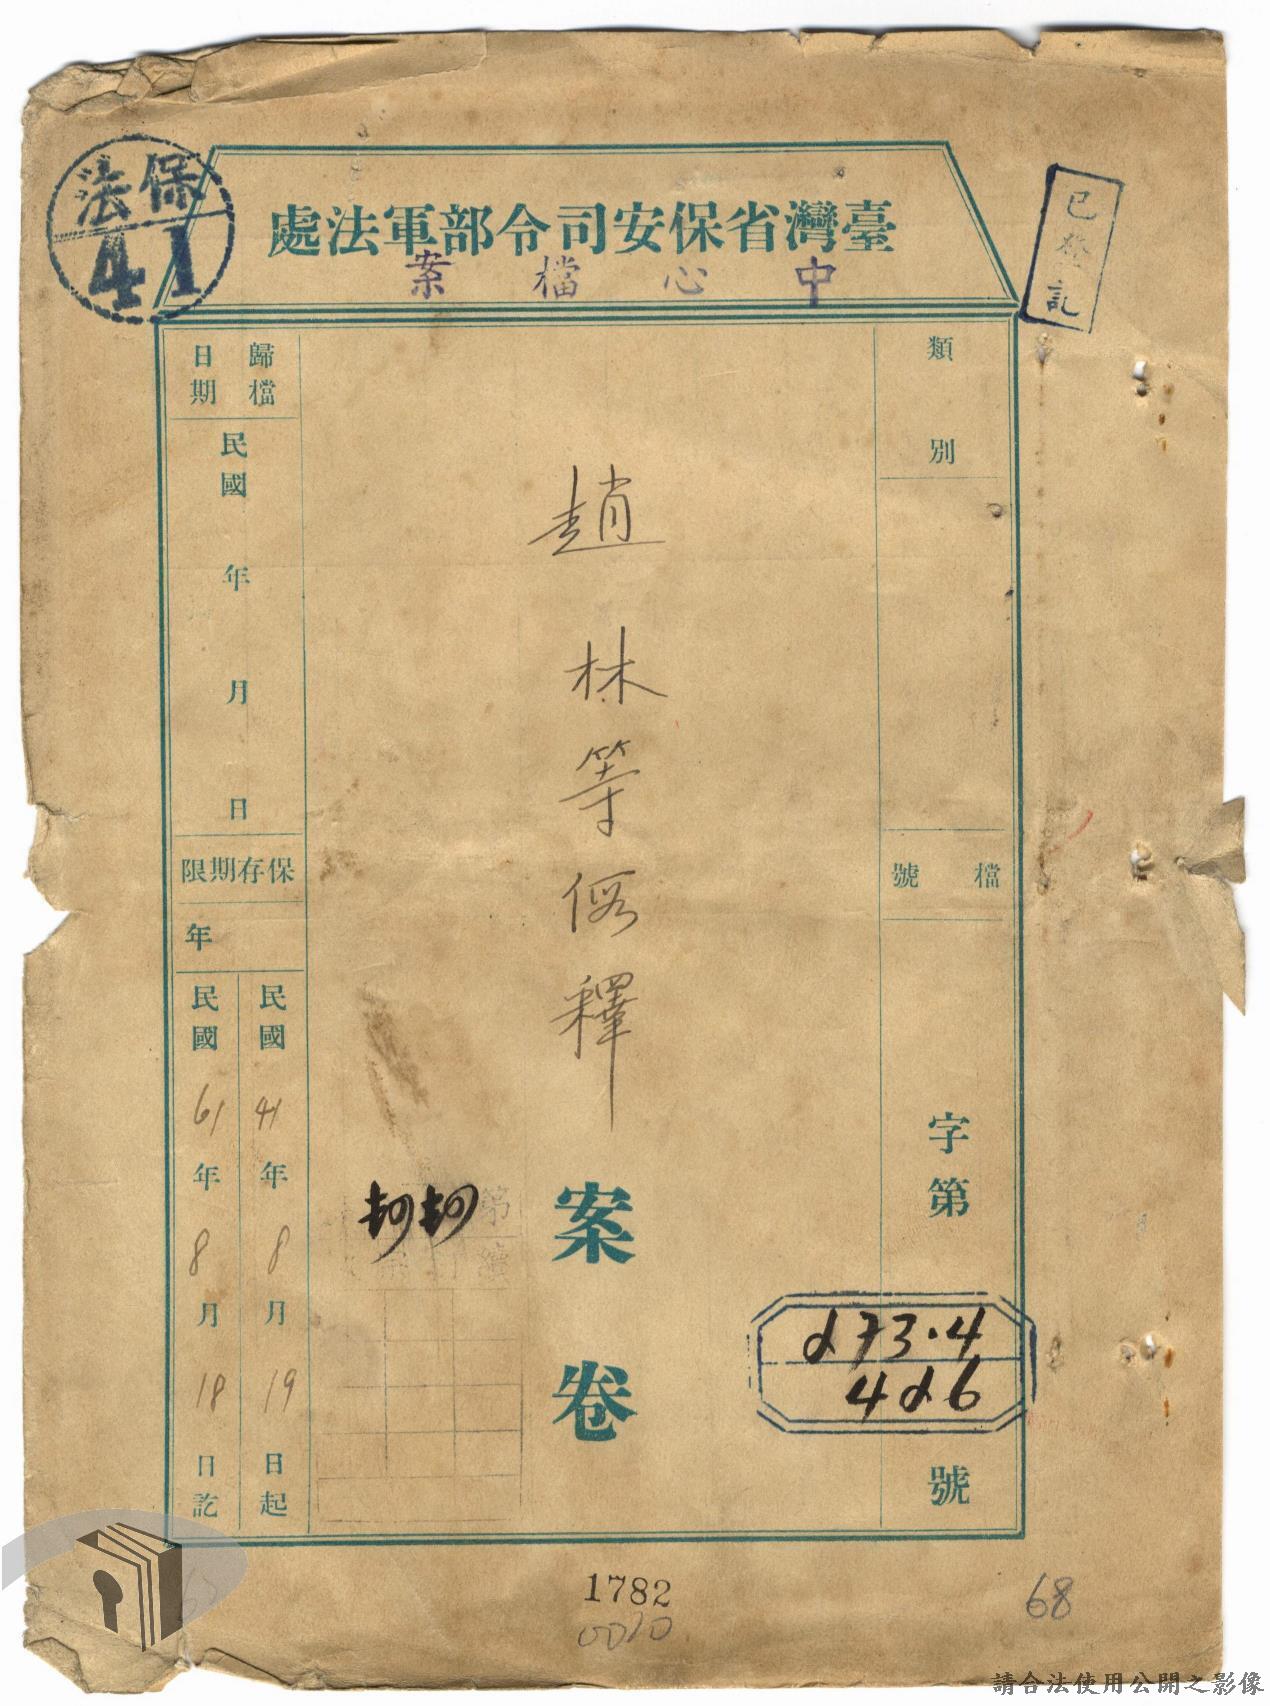 保法
41
臺灣省保安司令部軍法處
中心檔案
已登記
類別
檔號
字第
273.4
426
號
趙林等假釋
案卷
歸檔日期
民國 年 月 日
保存期限
年
民國41年8月19日起
民國61年8月18日訖
1782
0020
68
請合法使用公開之影像